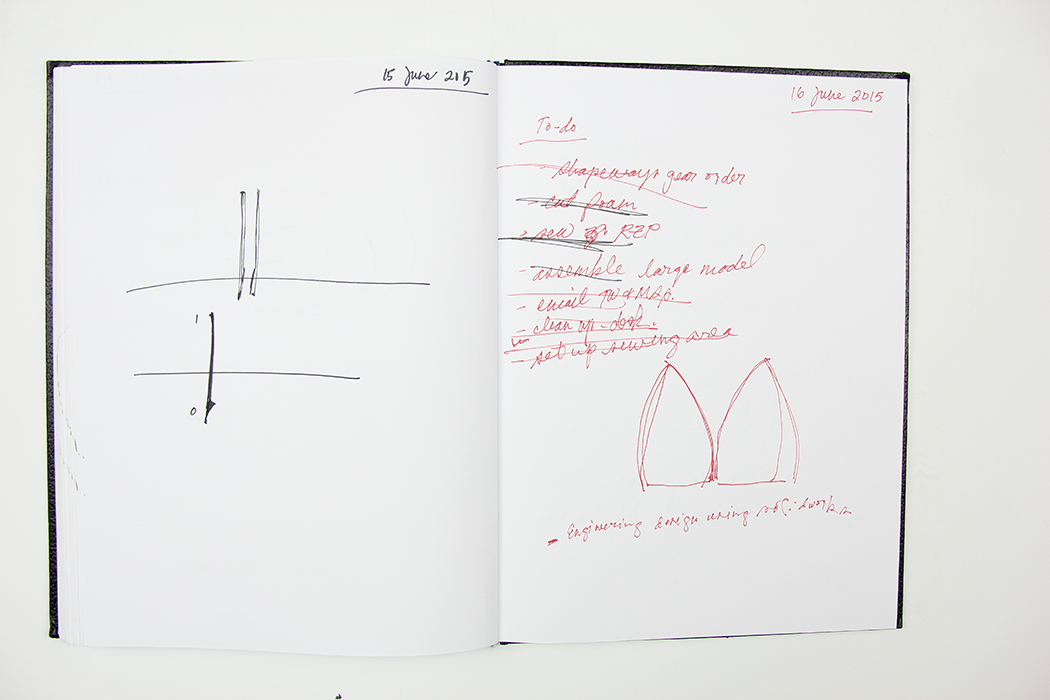 15 June 2015
1
0
16 June 2015
To-do
- shapeways gear order
- cut foam
- sew REP
- assemble large model
- email
- clean up desk.
- set up sewing area
- Engineering design using solidworks